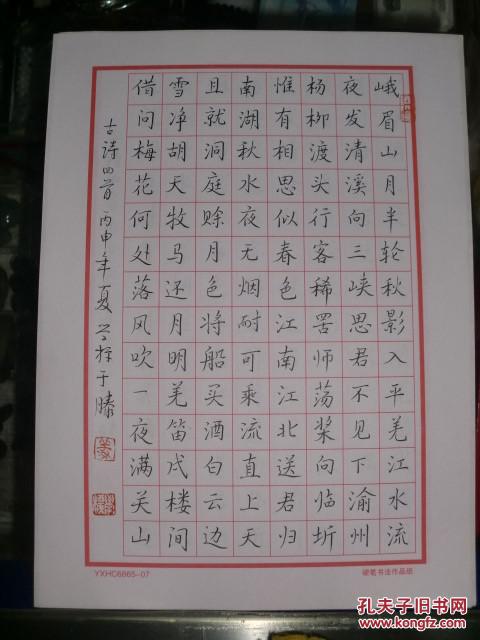 峨眉山月半轮秋影入平羌江水流
夜发清溪向三峡思君不见下渝州
杨柳渡头行客稀罟师荡桨向临圻
惟有相思似春色江南江北送君归
南湖秋水夜无烟耐可乘流直上天
且就洞庭赊月色将船买酒白云边
雪净胡天牧马还月明羌笛戍楼间
借问梅花何处落风吹一夜满关山
古诗四首 丙申年夏 于滕
YXHC6865-07
硬笔书法作品纸
孔夫子旧书网
www.kongfz.com